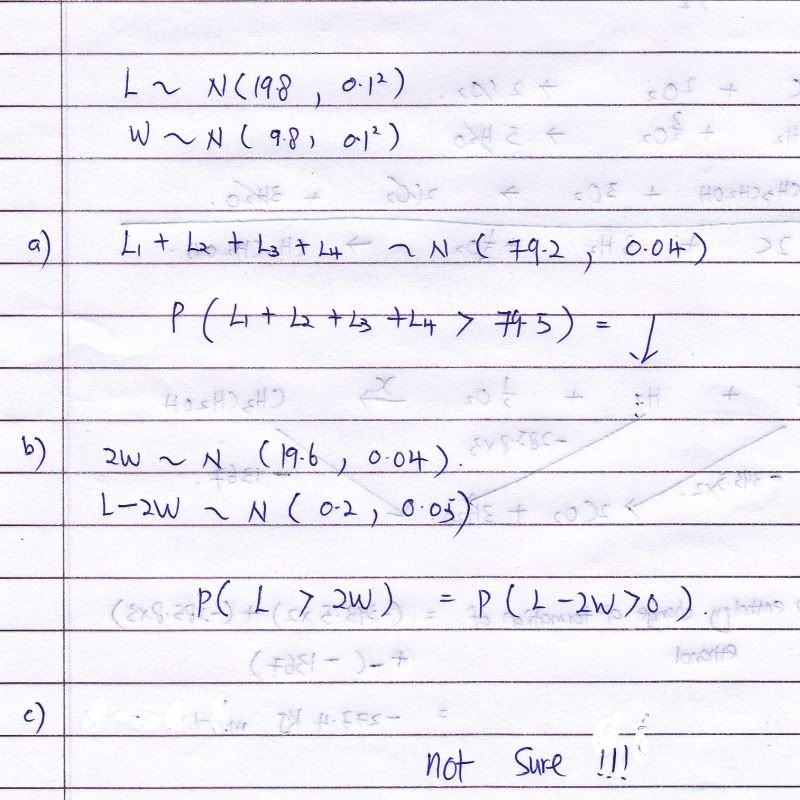 L ~ N(19.8 , 0.1²)
W ~ N( 9.8, 0.1²)
a) L₁ + L₂ + L₃ + L₄ ~ N ( 79.2 , 0.04)
P ( L₁ + L₂ + L₃ + L₄ > 79.5) = ↓
b) 2W ~ N (19.6 , 0.04).
L-2W ~ N ( 0.2 , 0.05)
P( L > 2W) = P ( L - 2W > 0 ).
c)
not Sure !!!